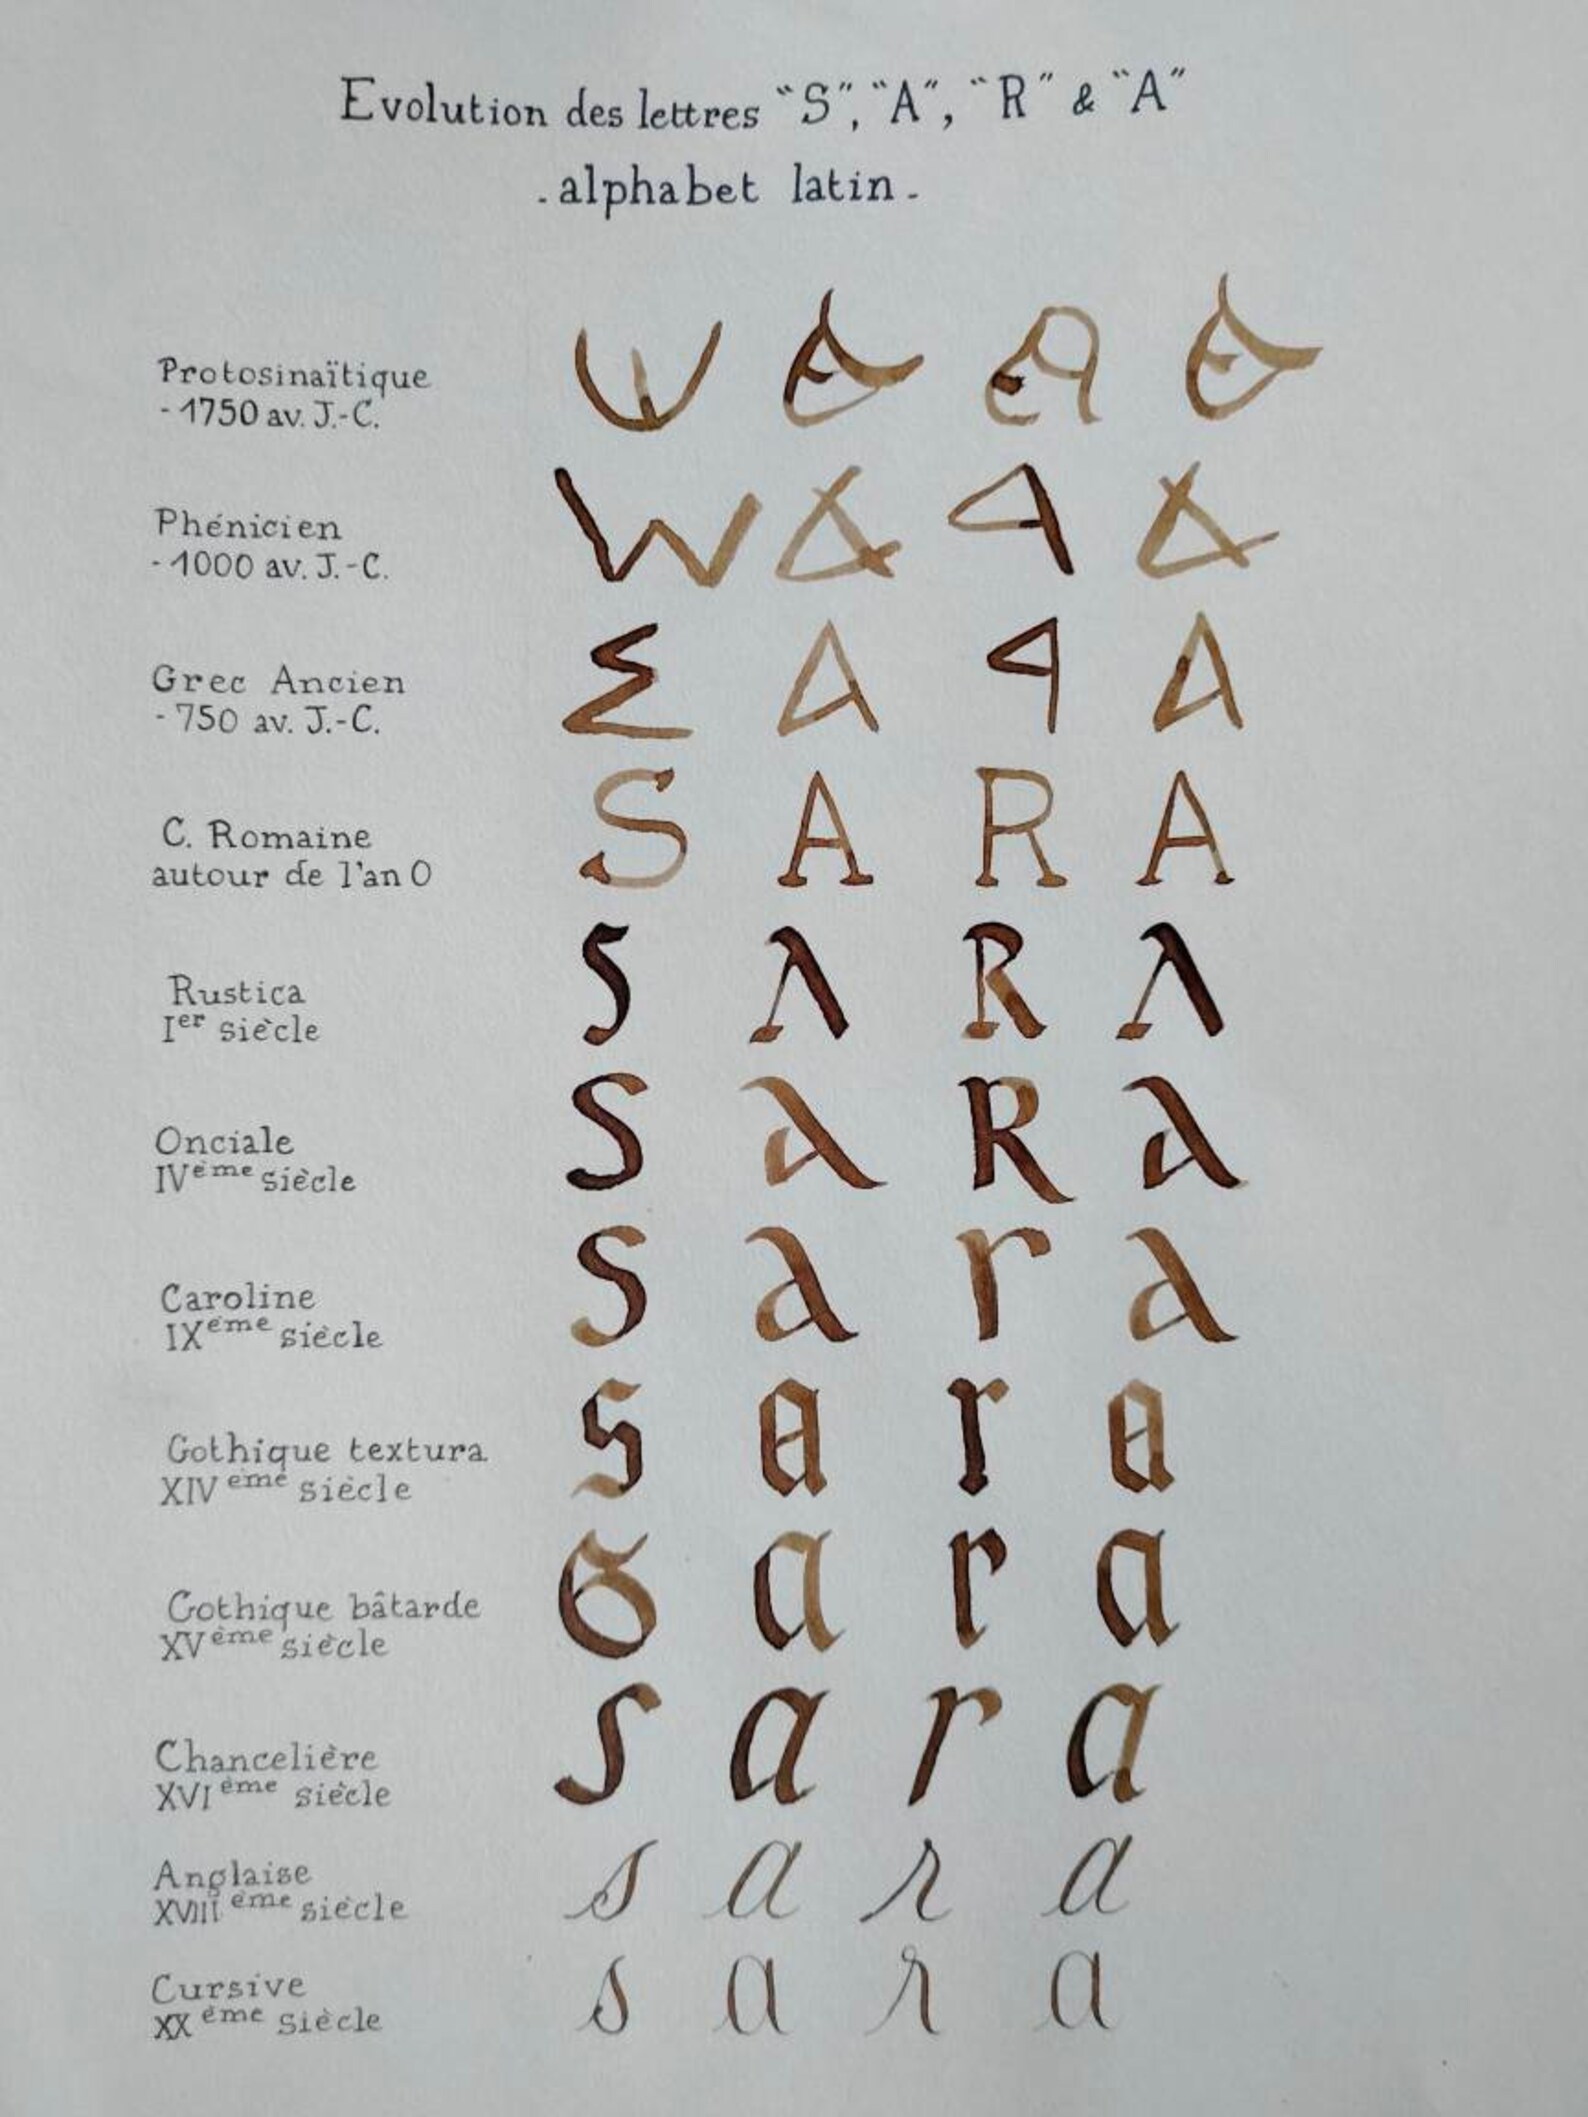 Evolution des lettres “S”, “A”, “R” & “A”
- alphabet latin -
Protosinaïtique
- 1750 av. J.-C.
Phénicien
- 1000 av. J.-C.
𐤔 𐤀 𐤓 𐤀
Grec Ancien
- 750 av. J.-C.
Σ Α ꟼ Α
C. Romaine
autour de l'an 0
S A R A
Rustica
Ier siècle
S A R A
Onciale
IVème siècle
S a R a
Caroline
IXème siècle
s a r a
Gothique textura
XIVème siècle
s a r a
Gothique bâtarde
XVème siècle
s a r a
Chancelière
XVIème siècle
s a r a
Anglaise
XVIIIème siècle
s a r a
Cursive
XXème siècle
s a r a